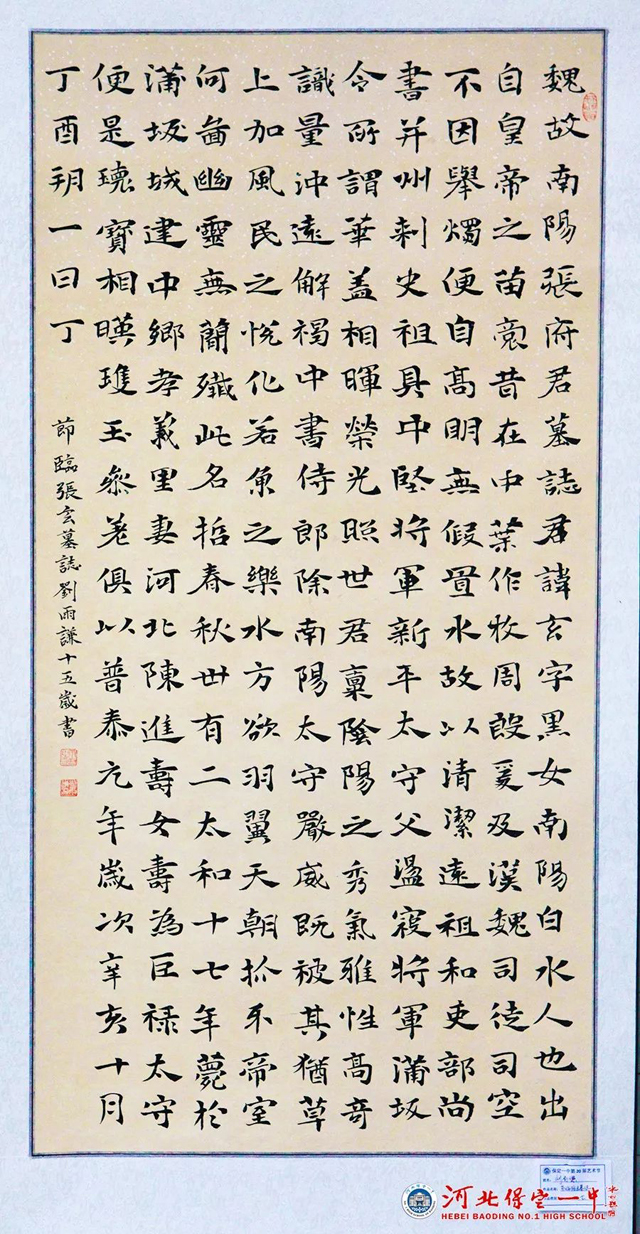 魏故南陽張府君墓誌君諱玄字黑女南陽白水人也出
自皇帝之苗裔昔在中葉作牧周殷爰及漢魏司徒司空
不因舉燭便自高明無假置水故以清潔遠祖和吏部尚
書并州刺史祖具中堅將軍新平太守父盪寇將軍蒲坂
令所謂華蓋相暉榮光照世君稟陰陽之秀氣雅性高奇
識量沖遠解褐中書侍郎除南陽太守嚴威既被其猶草
上加風民之悅化若魚之樂水方欲羽翼天朝抓牙帝室
何啚幽靈無蕳殲此名哲春秋卅有二太和十七年薨於
蒲坂城建中鄉孝義里妻河北陳進壽女壽為巨祿太守
便是瓌寶相暎瓊玉參差俱以普泰元年歲次辛亥十月
丁酉朔一日丁
節臨張玄墓誌劉雨謙十五歲書
河北保定一中
HEBEI BAODING NO.1 HIGH SCHOOL